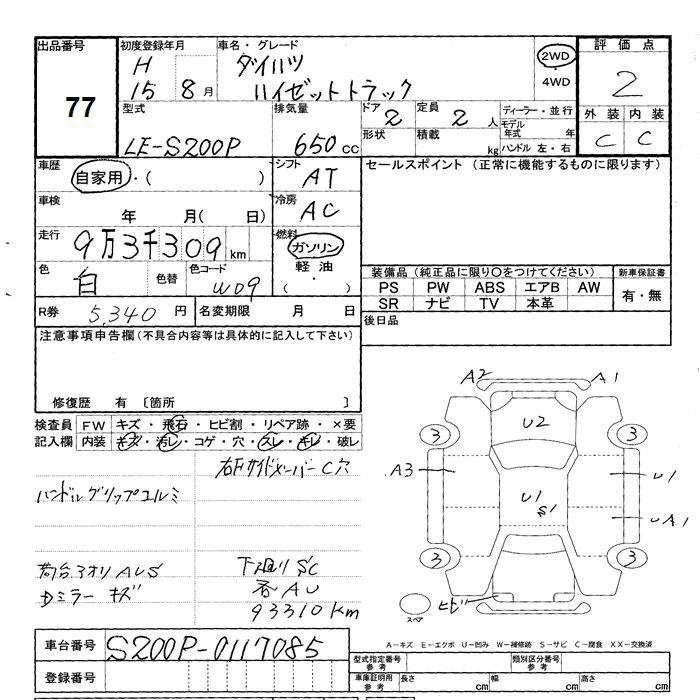 出品番号 初度登録年月 車名・グレード 評価点
77 H 15 8月 ダイハツ 2WD 2
ハイゼットトラック ・ 4WD
型式 排気量 ドア 2 定員 2 人 ディーラー・並行 外装 内装
LE-S200P 650cc 形状 積載 kg モデル年式 年 C C
ハンドル 左・右
車歴 自家用・( ) シフト AT セールスポイント (正常に機能するものに限ります)
車検 年 月( 日) 冷房 AC
走行 9万3千309km 燃料 ガソリン
色 白 色替 色コード W09 軽油 ・ ( )
装備品 (純正品に限り○をつけてください) 新車保証書
PS PW ABS エアB AW 有・無
SR ナビ TV 本革
R券 5,340 円 名変期限 月 日 後日品
注意事項申告欄 (不具合内容等は具体的に記入して下さい)
修復歴 有 〔箇所 〕
検査員 FW キズ・飛石・ヒビ割・リペア跡・×要
記入欄 内装 キズ・汚レ・コゲ・穴・スレ・キレ・破レ
右Fサイドメーバー C穴
ハンドルグリップユルミ
荷台アオリ AUS 下廻り SC
Dミラー キズ 各AU
93310km
A2 A1
U2
3 3
A3 U1 U1
S1 UA1
3 3
ヒビ
スペア
車台番号 S200P-0117085
登録番号
A-キズ E-エクボ U-凹み W-補修跡 S-サビ C-腐食 XX-交換済
型式指定番号 参考 類別区分番号 参考
車庫証明用 参考 長さ cm 幅 cm 高さ cm